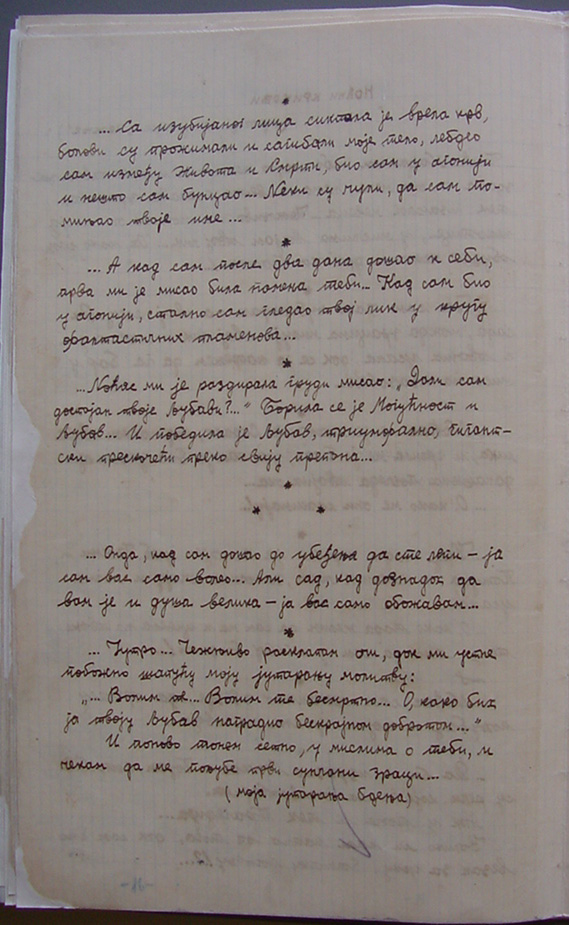 *
... Са изубијаног лица сиктала је врела крв,
болови су прожимали и сагибали моје тело, лебдео
сам између Живота и Смрти, био сам у агонији
и нешто сам бунцао... Неки су чули, да сам по-
мињао твоје име...
*
... А кад сам после два дана дошао к себи,
прва ми је мисао била помена теби... Кад сам био
у агонији, стално сам гледао твој лик у кругу
фантастичних пламенова...
*
... Ноћас ми је раздирала груди мисао: „Дали сам
достојан твоје љубави?..." Борила се је Могућност и
Љубав... И победила је Љубав, триумфално, гигант-
ски прескочећи преко свију препона...
*
* *
... Онда, кад сам дошао до убеђења да сте лепи – ја
сам вас само волео... Али сад, кад дознадох да
вам је и душа велика – ја вас само обожавам...
*
... Јутро... Чежњиво расклапам очи, док ми усне
побожно шапућу моју јутарању молитву:
„... Волим те... Волим те бескртно... О, како бих
ја твоју Љубав наградио бескрајном добротом..."
И поново тонем сетно, у мислима о теби, и
чекам да ме пољубе први сунчани зраци...
(моја јутарања бдења)